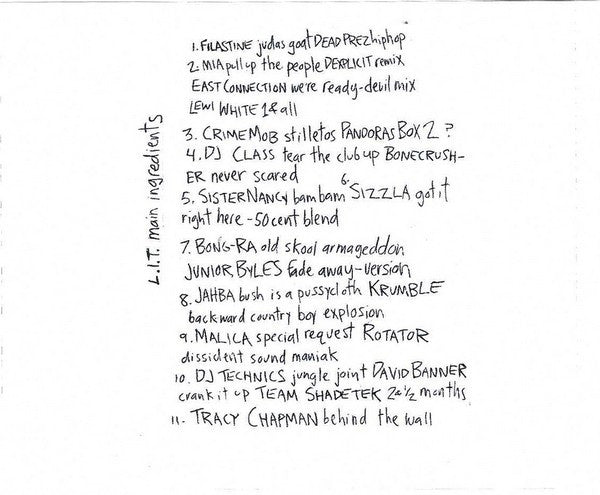 L.I.T. main ingredients
1. FILASTINE judas goat DEAD PREZ hiphop
2. MIA pull up the people DEXPLICIT remix
EAST CONNECTION we're ready-devil mix
LEWI WHITE 1 & all
3. CRIME MOB stilletos PANDORAS BOX 2 ?
4. DJ CLASS tear the club up BONECRUSH-
ER never scared
5. SISTER NANCY bam bam 6. SIZZLA got it
right here - 50 cent blend
7. BONG-RA old skool armageddon
JUNIOR BYLES fade away-version
8. JAHBA bush is a pussycloth KRUMBLE
backward country boy explosion
9. MALICA special request ROTATOR
dissident sound maniak
10. DJ TECHNICS jungle joint DAVID BANNER
crank it up TEAM SHADETEK 2 & 1/2 months
11. TRACY CHAPMAN behind the wall